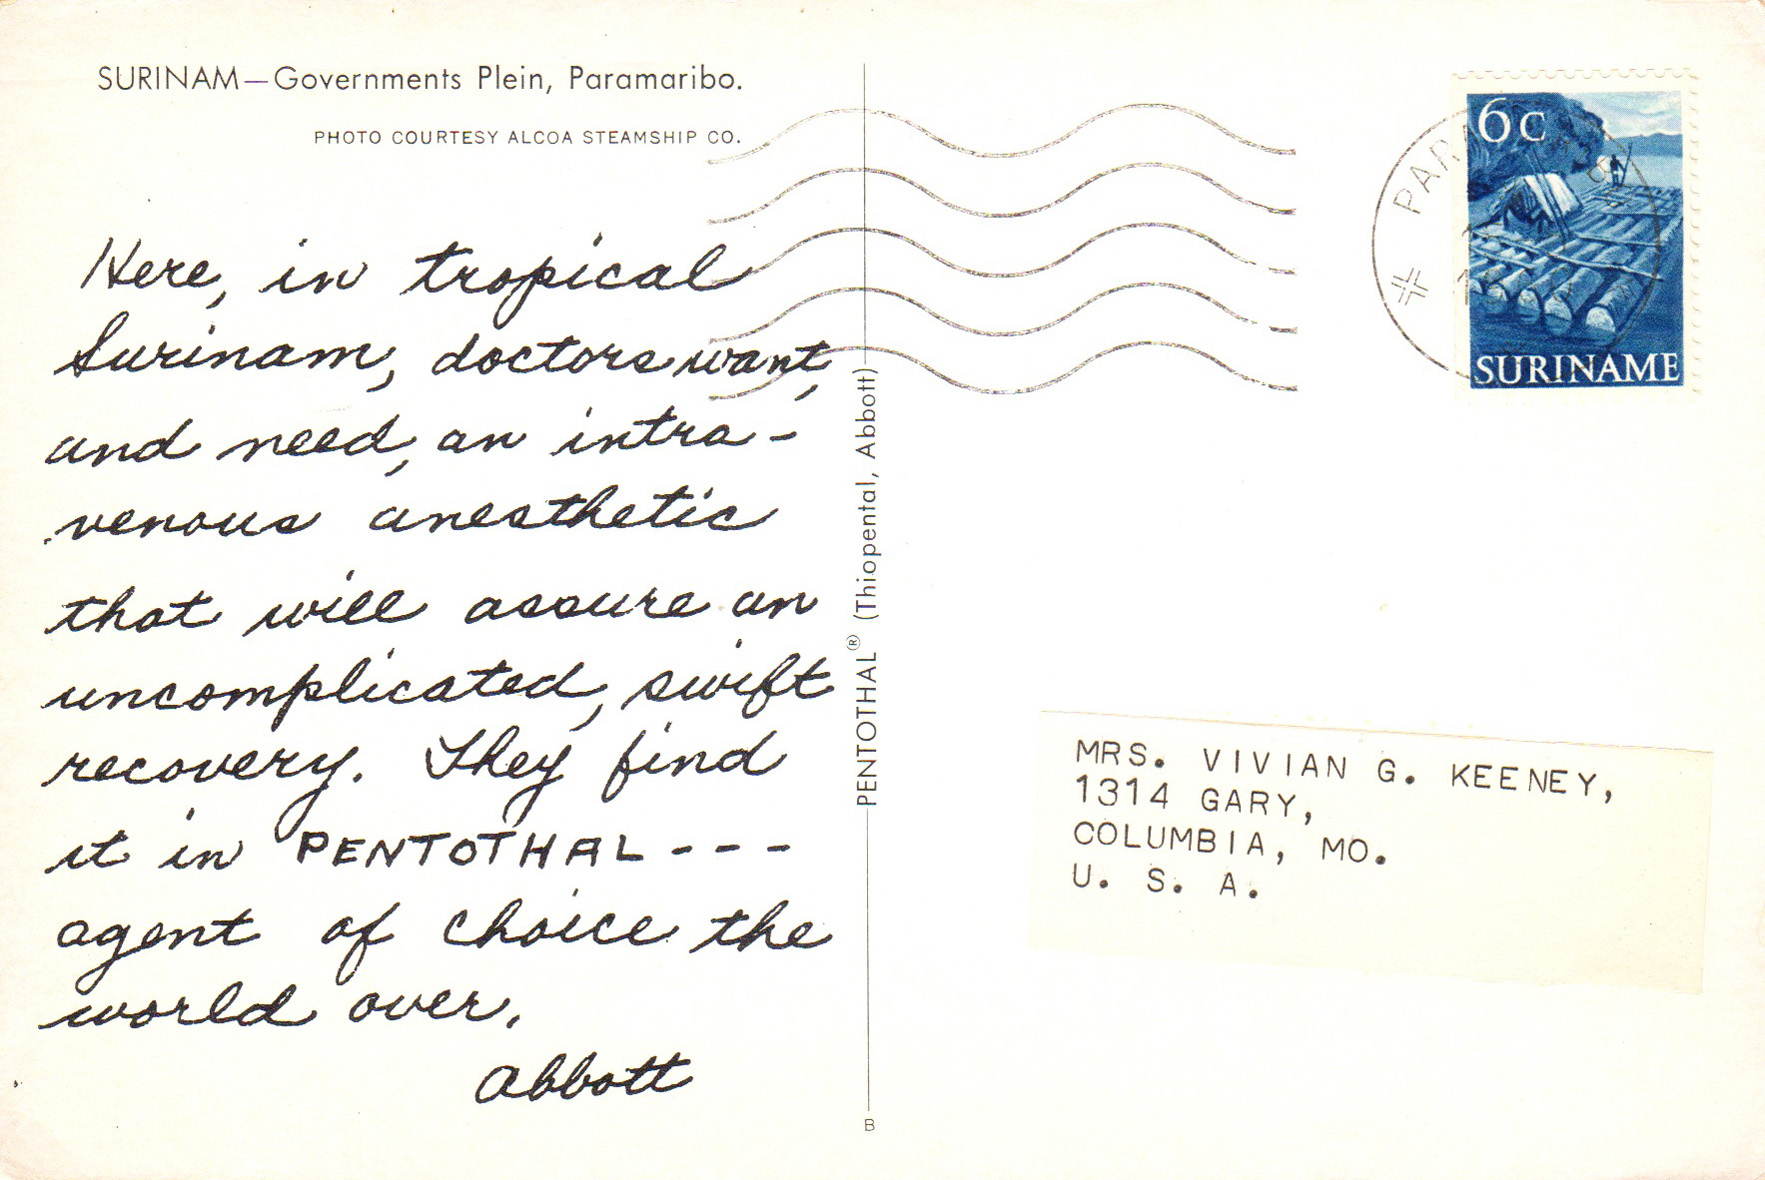 SURINAM—Governments Plein, Paramaribo.
PHOTO COURTESY ALCOA STEAMSHIP CO.
Here, in tropical
Surinam, doctors want,
and need, an intra-
venous anesthetic
that will assure an
uncomplicated, swift
recovery. They find
it in PENTOTHAL ---
agent of choice the
world over.
Abbott
PENTOTHAL® (Thiopental, Abbott)
B
6c
SURINAME
MRS. VIVIAN G. KEENEY,
1314 GARY,
COLUMBIA, MO.
U. S. A.